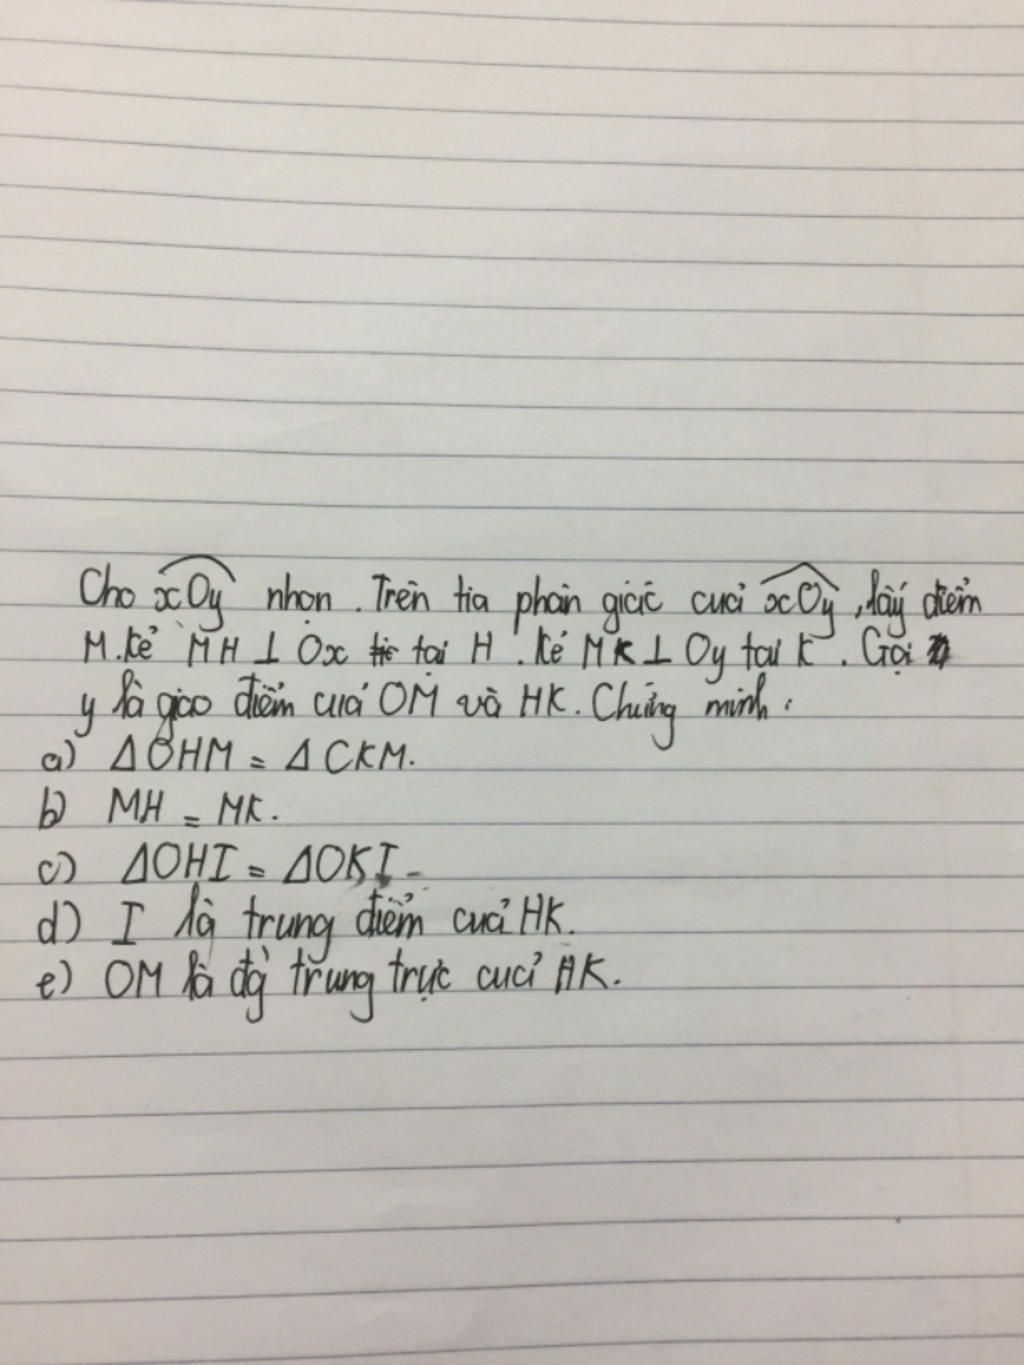 Cho xOy nhọn. Trên tia phân giác của xOy, lấy điểm
M. Kẻ MH ⊥ Ox tại H. Kẻ MK ⊥ Oy tại K. Gọi
y là giao điểm của OM và HK. Chứng minh:
a) ΔOHM = ΔCKM.
b) MH = MK.
c) ΔOHI = ΔOKI.
d) I là trung điểm của HK.
e) OM là đg trung trực của HK.